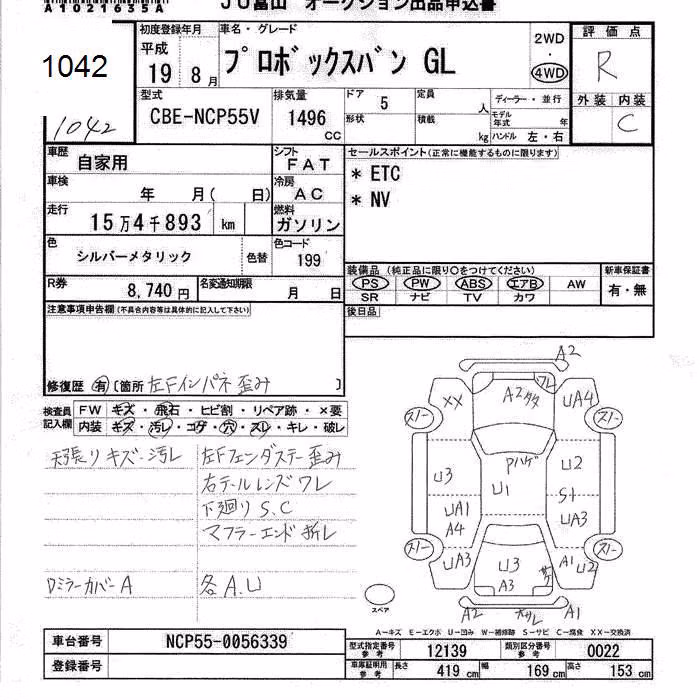 A1021635A
JU富山 オークション出品申込書
1042
1042
初度登録年月 車名・グレード
平成
19 8月 プロボックスバン GL
2WD
・
4WD
評価点
R
外装 内装
C
型式 排気量 ドア 5 定員 人 ディーラー・並行
CBE-NCP55V 1496 cc
形状 積載 kg モデル年式 年
ハンドル 左・右
車歴 自家用 シフト FAT
車検 年 月( 日) 冷房 AC
走行 15万4千893 km 燃料 ガソリン
色 シルバーメタリック 色替 色コード 199
R券 8,740円 名変通知期限 月 日
セールスポイント(正常に機能するものに限ります)
* ETC
* NV
装備品 (純正品に限り○をつけてください) 新車保証書
PS PW ABS エアB AW 有・無
SR ナビ TV カワ
後日品
注意事項申告欄(不具合内容等は具体的に記入して下さい)
修復歴 有 [箇所 左Fインパネ歪み ]
検査員記入欄
FW キズ・飛石・ヒビ割・リペア跡・×要
内装 キズ・汚レ・コゲ・穴・スレ・キレ・破レ
天張りキズ・汚レ 左Fフェンダステー歪み
右テールレンズワレ
下廻りS.C
マフラーエンド折レ
Dミラーカバー A 各A.U
A2
XX A2 ワレ UA4
スノー スノー
Pハゲ
U3 U1 U2
S1
UA1 UA3
A4
スノー スノー
UA3 U3 A1 U2
A3
A2 A1
スペア
A―キズ E―エクボ U―凹み W―補修跡 S―サビ C―腐食 XX―交換済
車台番号 NCP55-0056339
登録番号
型式指定番号参考 12139 類別区分番号参考 0022
車庫証明用参考 長さ 419cm 幅 169cm 高さ 153cm